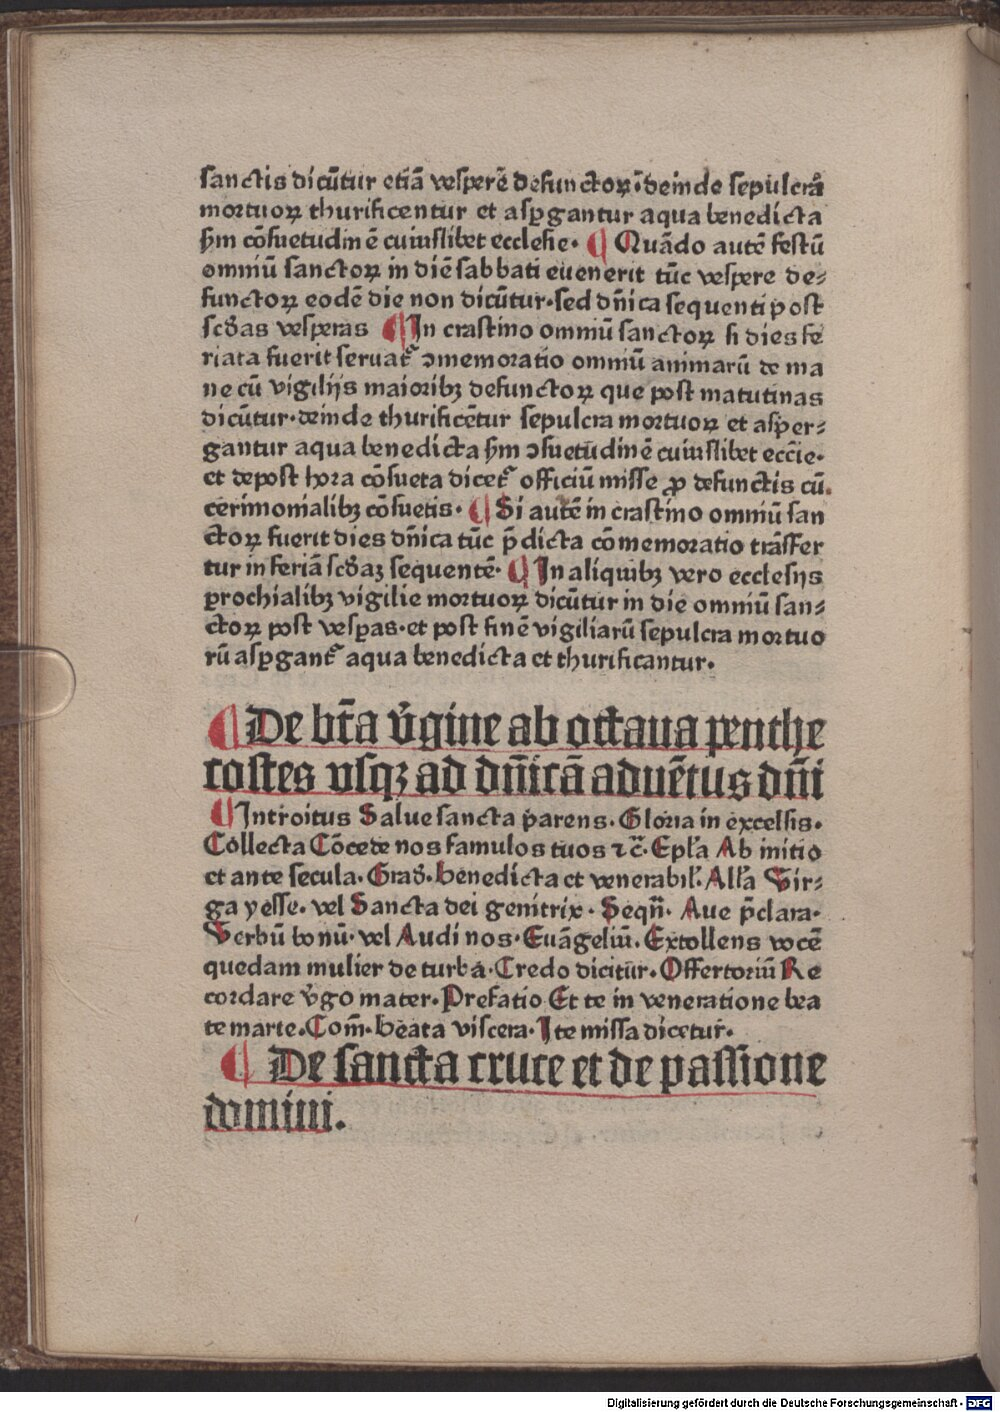 sanctis dicūtur etiā vesperē defunctoꝝ·deinde sepulcra
mortuoꝝ thurificentur et asꝑgantur aqua benedicta
ẜm cōsuetudinē cuiuslibet ecclesie· ¶ Quādo autē festū
omniū sanctoꝝ in diē sabbati evenerit tūc vespere de⸗
functoꝝ eodē die non dicūtur·sed dn̄ica sequenti post
scd̓as vesperas ¶ In crastino omniū sanctoꝝ si dies fe
riata fuerit servat᷑ ↄmemoratio omniū animarū de ma
ne cū vigilijs maioribꝫ defunctoꝝ que post matutinas
dicūtur·deinde thurificētur sepulcra mortuoꝝ et asper⸗
gantur aqua benedicta ẜm ↄsuetudinē cuiuslibet ecc̄ie·
et depost hora cōsueta dicet᷑ officiū misse ꝓ defunctis cū
cerimonialibꝫ cōsuetis· ¶ Si autē in crastino omniū san
ctoꝝ fuerit dies dn̄ica tūc p̄dicta cōmemoratio trāsfer
tur in feriā scd̓aꝫ sequentē· ¶ In aliquibꝫ vero ecclesijs
ꝑrochialibꝫ vigilie mortuoꝝ dicūtur in die omniū san⸗
ctoꝝ post vesꝑas·et post finē vigiliarū sepulcra mortuo
rū asꝑgant᷑ aqua benedicta et thurificantur·
¶ De bt̄a v̓gine ab octava penthe
costes vsqꝫ ad dn̄icā advētus dn̄i
¶ Introitus Salve sancta parens· Gloria in excelsis·
Collecta Cōcede nos famulos tuos ⁊c̄· Epl̓a Ab initio
et ante secula· Grad̓· Benedicta et venerabil̓· All̓a Vir⸗
ga yesse· vel Sancta dei genitrix· Seqn̄· Ave p̄clara·
Verbū bonū· vel Audi nos· Euāgeliū· Extollens vocē
quedam mulier de turba· Credo dicitur· Offertoriū Re
cordare v̓go mater· Prefatio Et te in veneratione bea
te marie· Com̄· Beata viscera· Ite missa dicetur·
¶ De sancta cruce et de passione
domini.
Digitalisierung gefördert durch die Deutsche Forschungsgemeinschaft - DFG